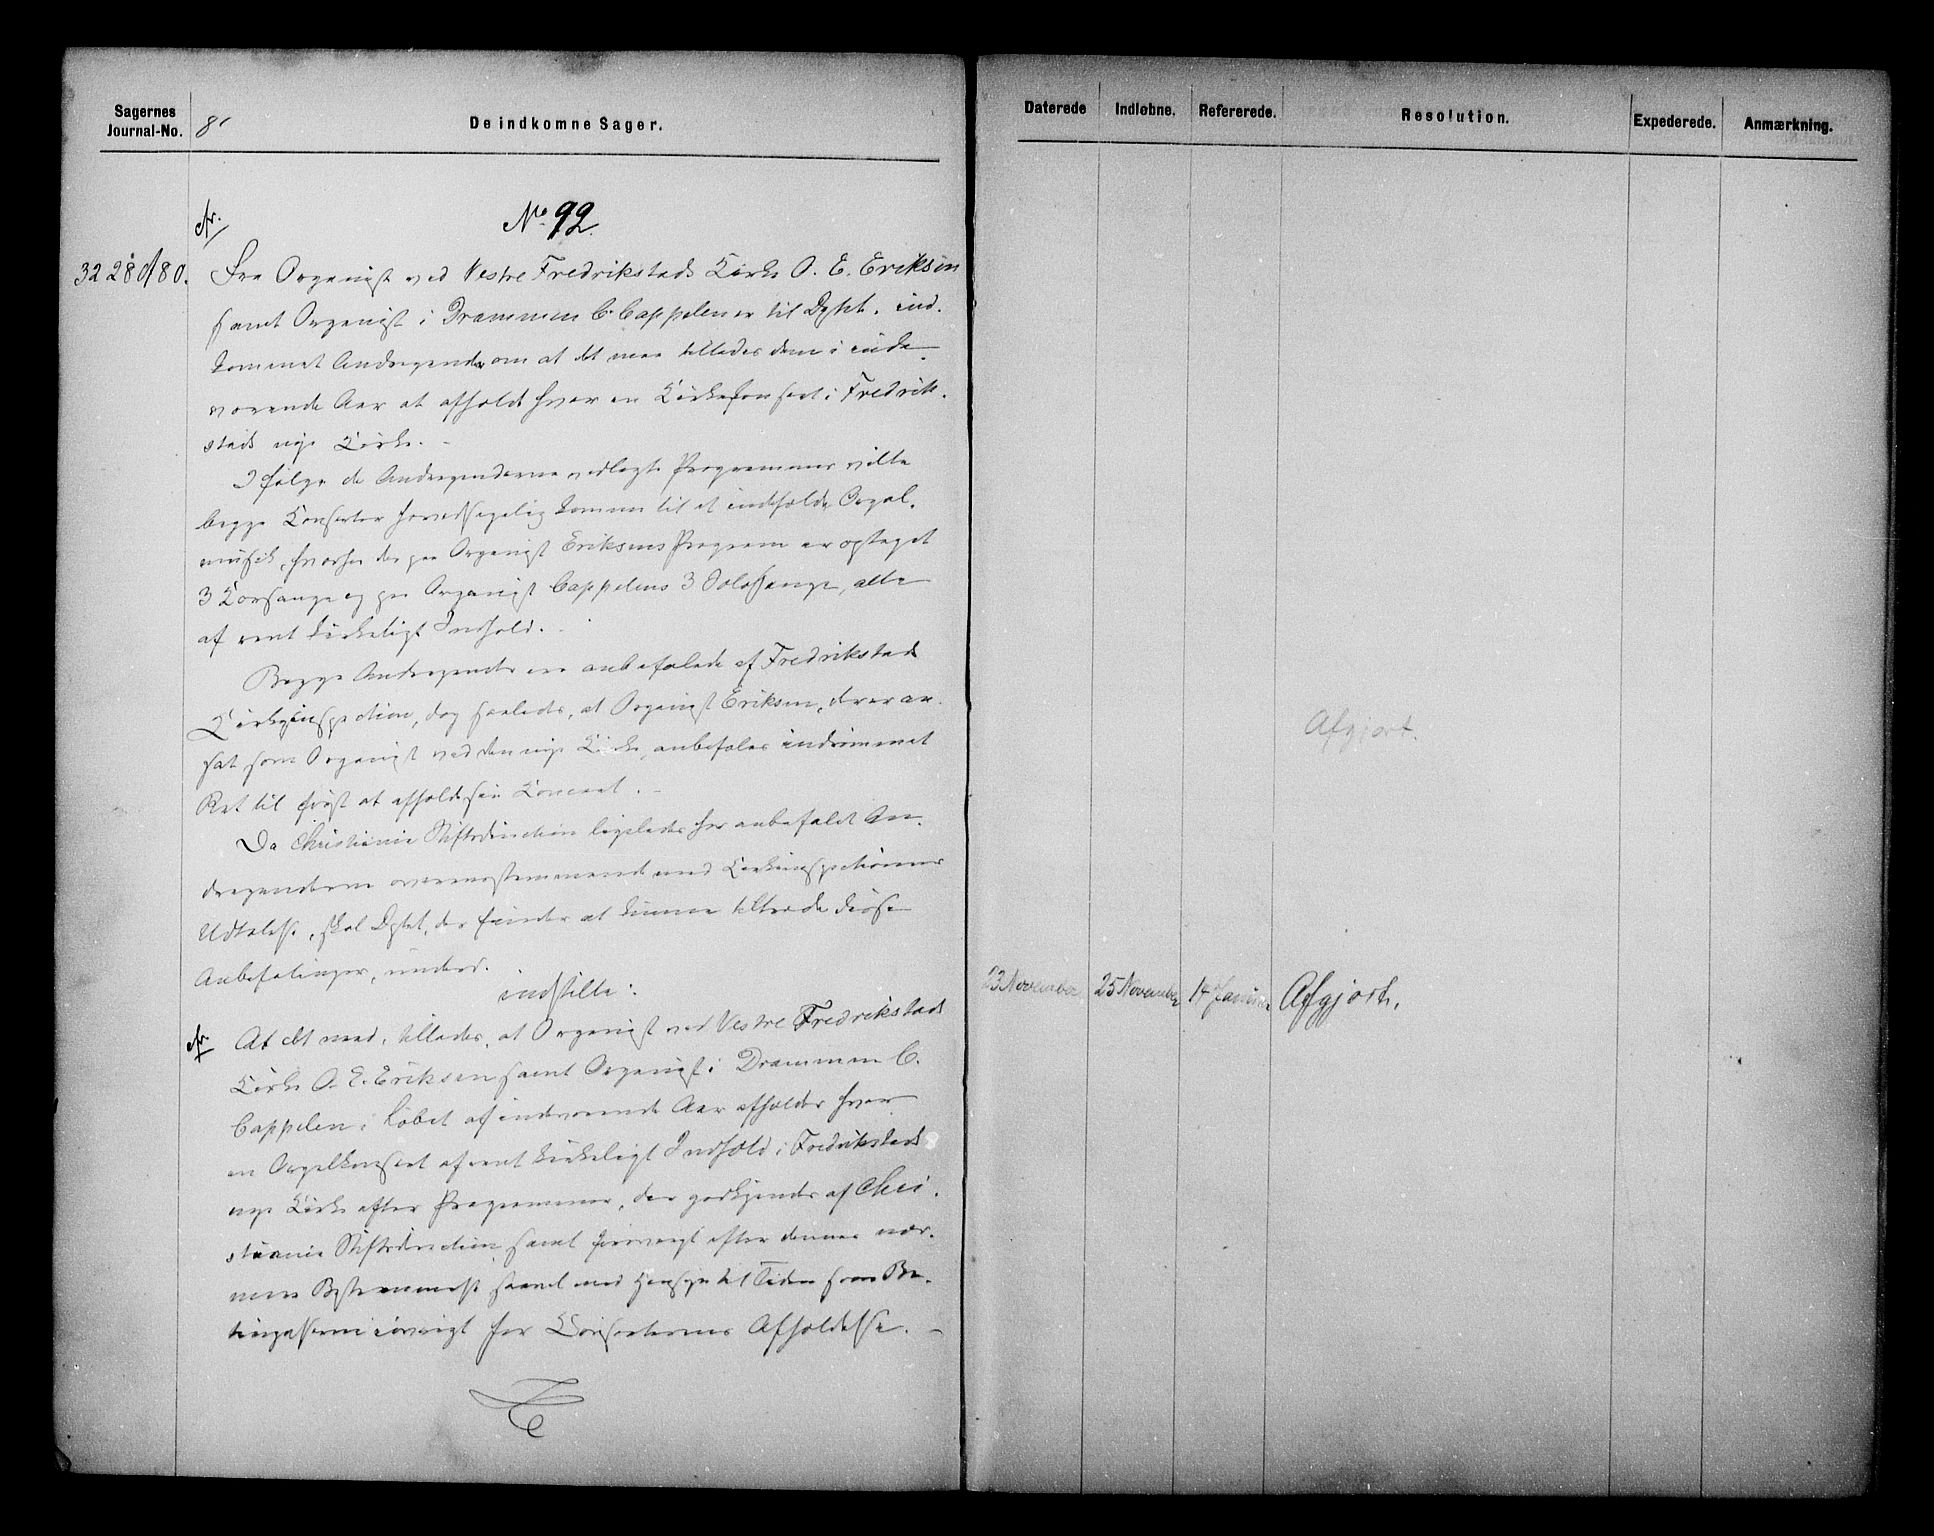 Sagernes
Journal-No.
8
De indkomne Sager.
No 92.
3228 d/80.
Fra Organist ved Vestre Fredrikstads Kirke O. E. Eriksen
samt Organist i Drammen C. Cappelen er til Dptet. ind-
kommet Andragende om at det maa tillades dem i inde-
værende Aar at afholde hver en Kirkekonsert i Fredrik-
stads nye Kirke. -
Ifølge de Andragenderne vedlagte Programmer ville
begge Konserter hovedsagelig komme til at indeholde Orgel-
musik, hvorhos der paa Organist Eriksens Program er optaget
3 Korsange og paa Organist Cappelens 3 Solosange, alle
af rent kirkeligt Indhold. -
Begge Andragender ere anbefalede af Fredrikstads
Kirkeinspection, dog saaledes, at Organist Eriksen, der er an-
sat som Organist ved den nye Kirke, anbefales indrømmet
Ret til først at afholde sin Koncert. -
Da Christiania Stiftsdirection ligeledes har anbefalet An-
dragenderne overensstemmende med Kirkeinspectionens
Udtalelse, skal Dptet, der finder at kunne tiltræde disse
Anbefalinger, underd.
indstille:
At det maa tillades, at Organist ved Vestre Fredrikstads
Kirke O. E. Eriksen samt Organist i Drammen C.
Cappelen i Løbet af indeværende Aar afholder hver
en Orgelkonsert af rent kirkeligt Indhold i Fredrikstads
nye Kirke efter Programmer, der godkjendes af Chri-
stiania Stiftsdirection samt forøvrigt efter dennes nær-
mere Bestemmelse saavel med Hensyn til Tiden som Be-
tingelserne iøvrigt for Konserternes Afholdelse. -
Daterede
Indløbne.
Refererede.
Resolution.
Expederede.
Anmærkning.
Afgjort.
23 November
25 November
14 Januar
Afgjort.